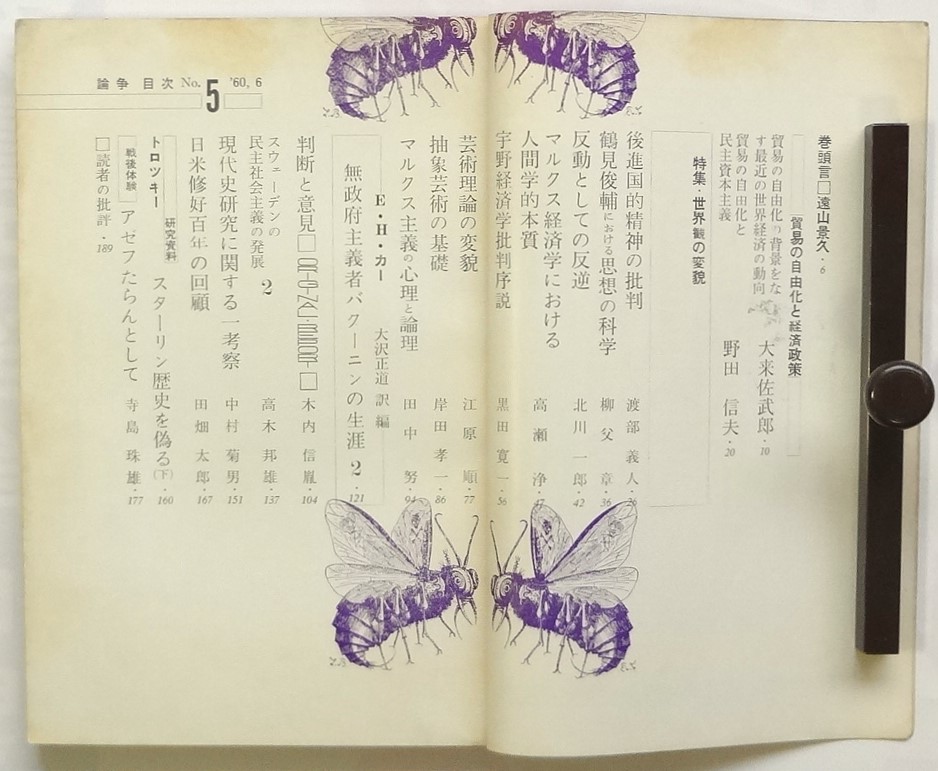 巻頭言□遠山景久・6
貿易の自由化と経済政策
貿易の自由化の背景をな
す最近の世界経済の動向
大来佐武郎・10
貿易の自由化と
民主資本主義
野田 信夫・20
特集・世界観の変貌
後進国的精神の批判 渡部義人・26
鶴見俊輔における思想の科学 柳父 章・36
反動としての反逆 北川一郎・42
マルクス経済学における
人間学的本質 高瀬 浄・47
宇野経済学批判序説 黒田寛一・56
芸術理論の変貌 江原 順・77
抽象芸術の基礎 岸田孝一・86
マルクス主義の心理と論理 田中 努・94
E・H・カー 大沢正道 訳編
無政府主義者バクーニンの生涯 2・121
判断と意見□ □ 木内信胤・104
スウェーデンの
民主社会主義の発展 2 高木邦雄・137
現代史研究に関する一考察 中村菊男・151
日米修好百年の回顧 田畑太郎・167
研究資料
トロツキー スターリン歴史を偽る(下)・160
戦後体験 アゼフたらんとして 寺島珠雄・177
□読者の批評・189
論争 目次 No. 5 '60, 6